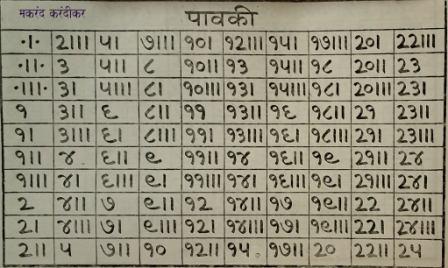 मकरंद करंदीकर
पावकी
·।· २।।। ५। ७।।। १०। १२।।। १५। १७।।। २०। २२।।।
·।।· ३ ५।। ८ १०।। १३ १५।। १८ २०।। २३
·।।।· ३। ५।।। ८। १०।।। १३। १५।।। १८। २०।।। २३।
१ ३।। ६ ८।। ११ १३।। १६ १८।। २१ २३।।
१। ३।।। ६। ८।।। ११। १३।।। १६। १८।।। २१। २३।।।
१।। ४ ६।। ९ ११।। १४ १६।। १९ २१।। २४
१।।। ४। ६।।। ९। ११।।। १४। १६।।। १९। २१।।। २४।
२ ४।। ७ ९।। १२ १४।। १७ १९।। २२ २४।।
२। ४।।। ७। ९।।। १२। १४।।। १७। १९।।। २२। २४।।।
२।। ५ ७।। १० १२।। १५ १७।। २० २२।। २५